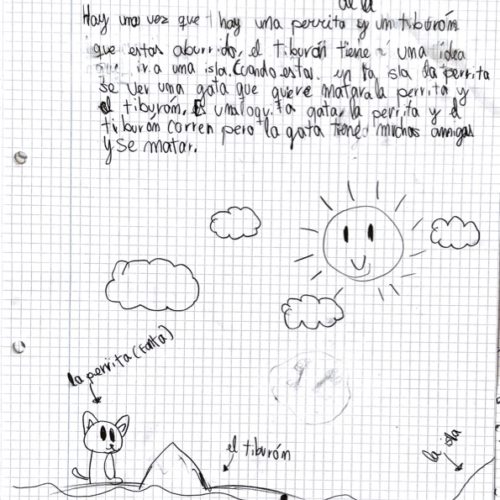 de la
Hay una vez que hay una perrita y un tiburón
que estas aburrido, el tiburón tiene una idea
ir a una isla. Cuando estas en la isla la perrita
se ver una gata que quiere matar a la perrita y
el tiburón. Es una loquita gata, la perrita y el
tiburón corren pero la gata tiene muchas amigas
y se matar.
la perrita (Fanta)
el tiburón
la isla